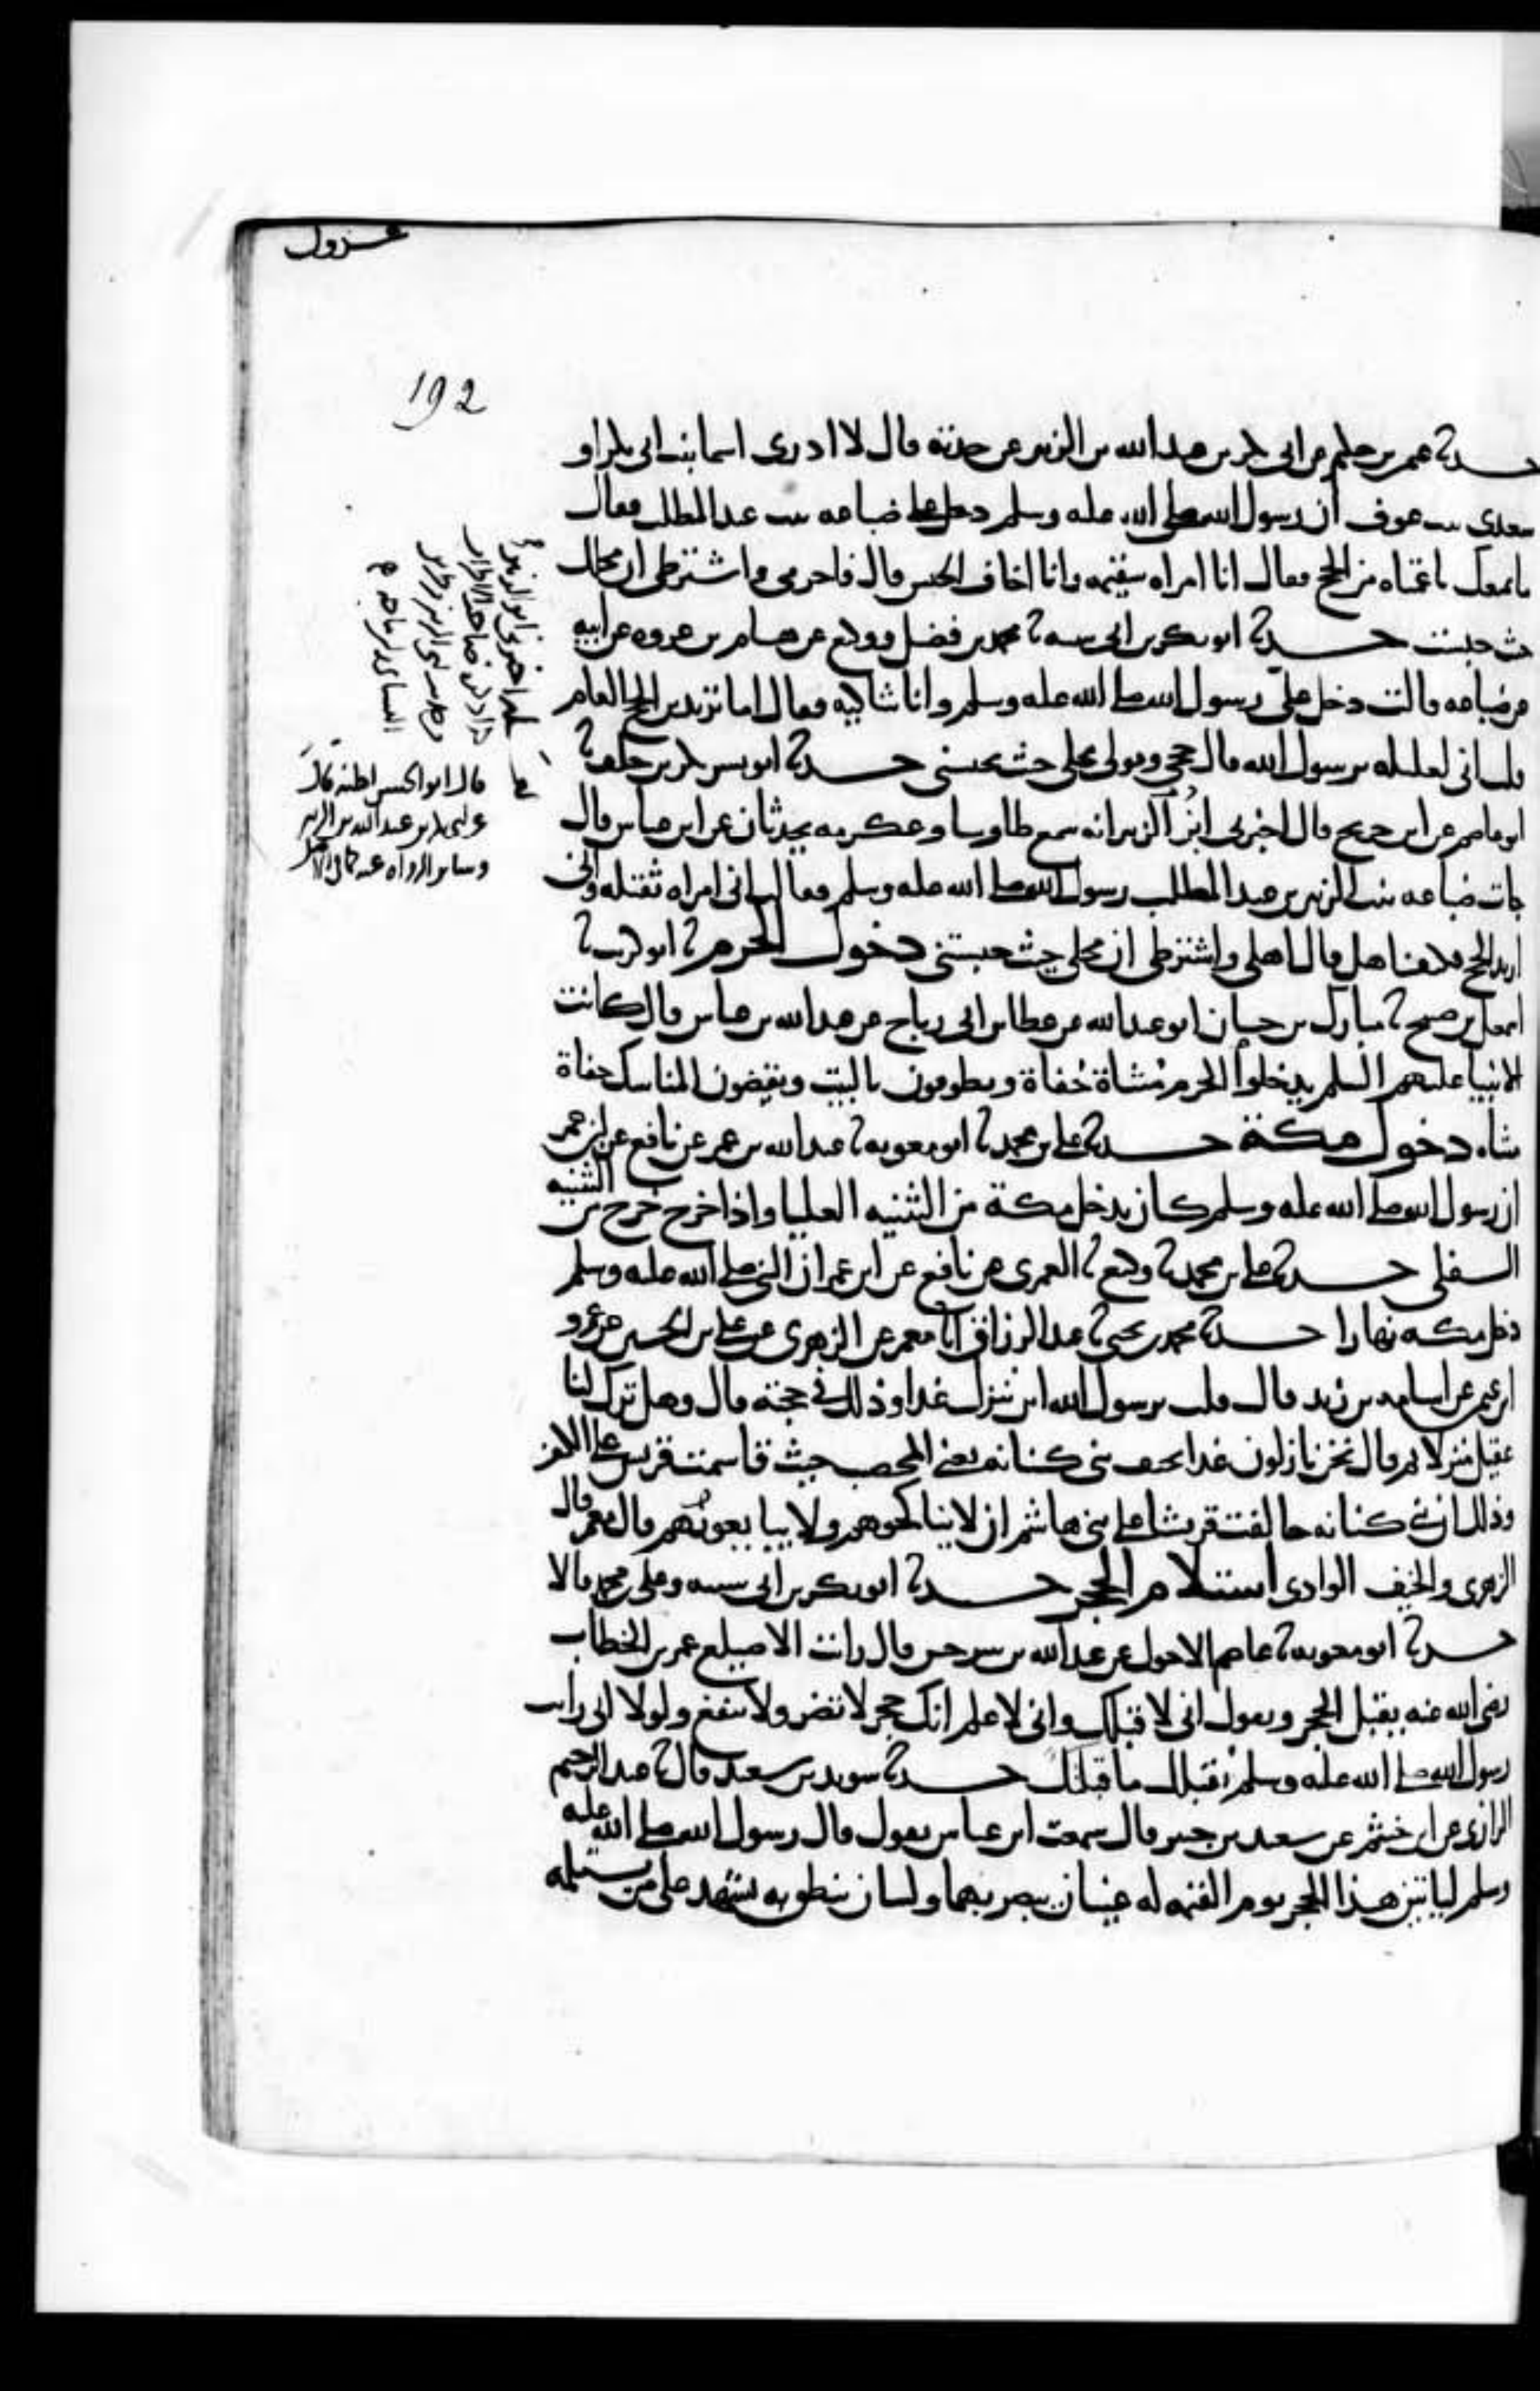 192
حدثنا عثمن بن حكيم عن ابي بكر بن عبد الله بن الزبير عن جدته قال لا ادري اسما بنت ابي بكر او
سعدى بنت عوف ان رسول الله صلى الله عليه وسلم دخل على ضباعه بنت عبد المطلب فقال
ما يمنعك يا عمتاه من الحج فقالت انا امراه سقيمه وانا اخاف الحبس قال فاحرمي واشترطي ان محلك
حيث حبست حدثنا ابو بكر بن ابي شيبه ثنا محمد بن فضيل ووكيع عن هشام بن عروه عن ابيه
عن ضباعه قالت دخل علي رسول الله صلى الله عليه وسلم وانا شاكيه فقال اما تريدين الحج العام
قلت اني لعليله يرسول الله قال حجي وقولي محلي حيث تحبسني حدثنا ابو بشر بكر بن خلف ثنا
ابو عاصم عن ابن جريج قال اخبرني ابو الزبير انه سمع طاوسا وعكرمه يحدثان عن ابن عباس قال
جات ضباعه بنت الزبير بن عبد المطلب رسول الله صلى الله عليه وسلم فقالت اني امراه ثقيله واني
اريد الحج فكيف اهل قال اهلي واشترطي ان محلي حيث حبستني دخول الحرم ثنا ابو كريب ثنا
اسمعيل بن صبيح ثنا مبارك بن حسان ابو عبد الله عن عطا بن ابي رباح عن عبد الله بن عباس قال كانت
الانبيا عليهم السلم يدخلوا الحرم مشاة حفاة ويطوفون بالبيت ويقضون المناسك حفاة
مشاه دخول مكة حدثنا علي بن محمد ثنا ابو معويه ثنا عبد الله بن عمر عن نافع عن ابن عمر
ان رسول الله صلى الله عليه وسلم كان يدخل مكة من الثنيه العليا واذا خرج خرج من الثنيه
السفلى حدثنا علي بن محمد ثنا وكيع ثنا العمري عن نافع عن ابن عمر ان النبي صلى الله عليه وسلم
دخل مكه نهارا حدثنا محمد بن يحيى ثنا عبد الرزاق انا معمر عن الزهري عن علي بن الحسين عن عمرو
بن عثمن عن اسامه بن زيد قال قلت يرسول الله اين تنزل غدا وذلك في حجته قال وهل ترك لنا
عقيل منزلا ثم قال نحن نازلون غدا بخيف بني كنانه يعني المحصب حيث قاسمت قريش على الكفر
وذلك ان بني كنانه حالفت قريشا على بني هاشم ان لا يناكحوهم ولا يبايعوهم قال معمر قال
الزهري والخيف الوادي استلام الحجر حدثنا ابو بكر بن ابي شيبه وعلي بن محمد قالا
حدثنا ابو معويه ثنا عاصم الاحول عن عبد الله بن سرجس قال رايت الاصيلع عمر بن الخطاب
رضي الله عنه يقبل الحجر ويقول اني لاقبلك واني لاعلم انك حجر لا تضر ولا تنفع ولولا اني رايت
رسول الله صلى الله عليه وسلم يقبلك ما قبلتك حدثنا سويد بن سعيد قال ثنا عبد الرحيم
الرازي عن ابن خثيم عن سعيد بن جبير قال سمعت ابن عباس يقول قال رسول الله صلى الله عليه
وسلم لياتين هذا الحجر يوم القيمه له عينان يبصر بهما ولسان ينطق به يشهد على من يستلمه
قال ابو الحسن اظنه قال
عن ابي بكر بن عبد الله بن الزبير